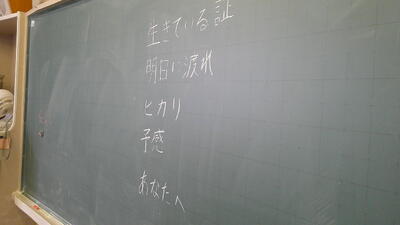 生きている証
明日に涙れ
ヒカリ
予感
あなたへ